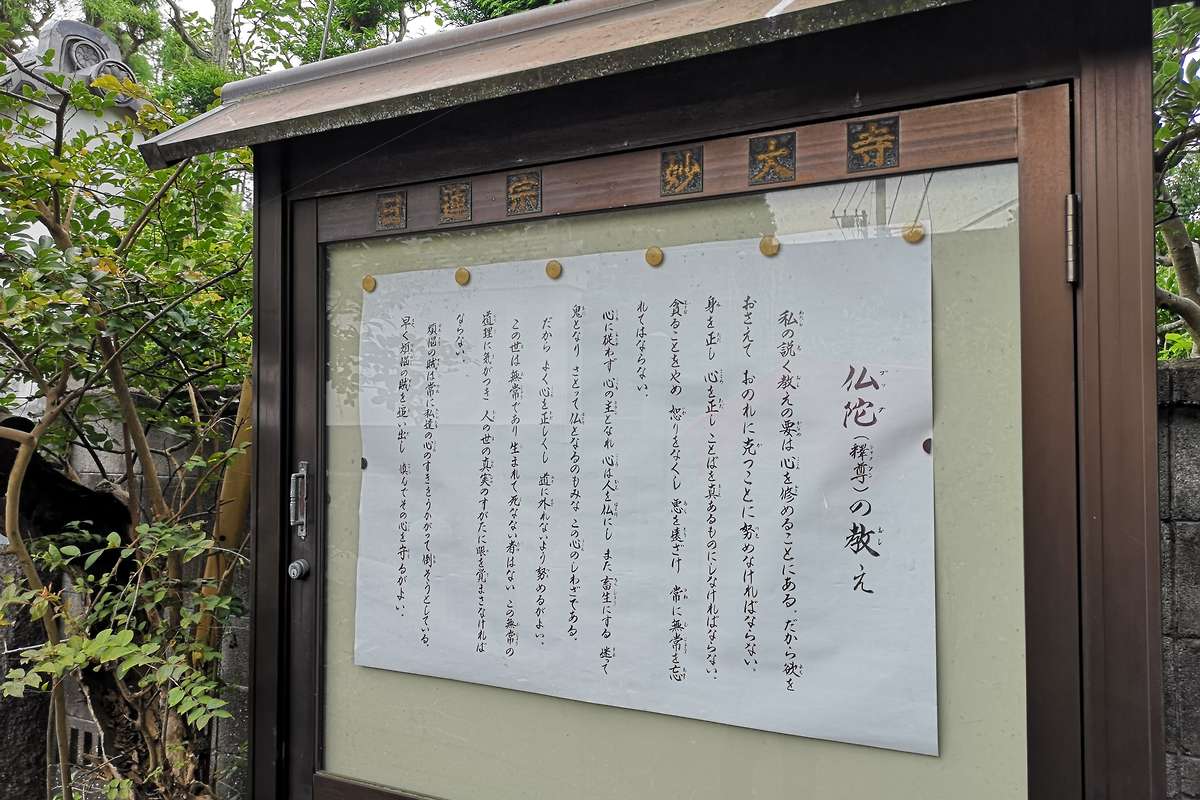 日蓮宗 妙大寺
仏陀(釋尊)の教え
私の説く教えの要は 心を修めることにある。だから欲を
おさえて おのれに克つことに 努めなければならない。
身を正し 心を正し ことばを真あるものにしなければならない。
貪ることをやめ 怒りをなくし 悪を遠ざけ 常に無常を忘
れてはならない。
心に従わず 心の主となれ 心は人を仏にし また畜生にする 迷って
鬼となり さとって仏となるのもみな この心のしわざである。
だから よく心を正しくし 道に外れないよう努めるがよい。
この世は無常であり 生まれて死なない者はない この無常の
道理に気がつき 人の世の真実のすがたに眼を覚まさなければ
ならない。
煩悩の賊は常に私達の心のすきをうかがって倒そうとしている。
早く煩悩の賊を追い出し 慎んでその心を守るがよい。